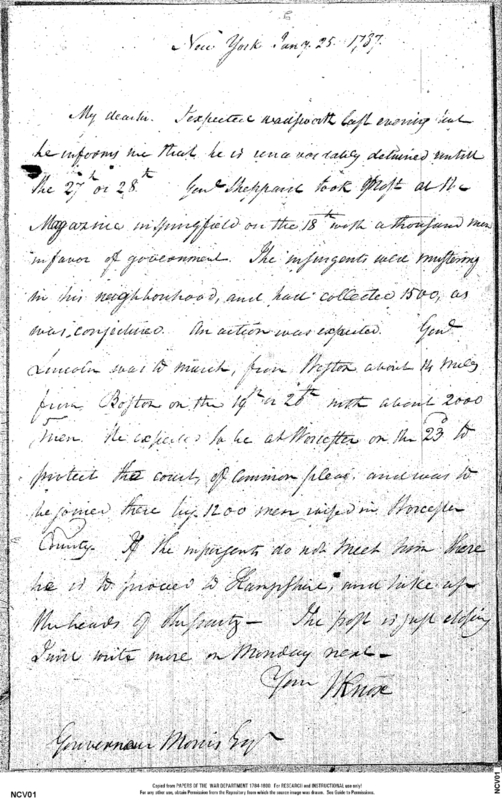 New York Jany. 25. 1787.
My dear sir. I expected wadsworth last evening but
he informs me that he is unavoidably detained untill
the 27th or 28th Genl Sheppard took post at the
Magazine in springfield on the 18th with a thousand men
in favor of government. The insurgents were mustering
in his neighbourhood, and had collected 1500, as
was conjectured. An action was expected. Genl
Lincoln was to march, from about 14 miles
from Boston on the 19th or 20th with about 2000
men. He expected to be at Worcester on the 23d to
protect the court of common pleas. and was to
be joined there by 1200 men raised in Worcester
County. If the insurgents do not meet him there
he is to proceed to Hampshire, and take up
the heads of the party — The post is just closing
I will write more on Monday next —
Your J Knox
Gouverneur Morris Esqr
NCV01
Copied from PAPERS OF THE WAR DEPARTMENT 1784-1800. For RESEARCH and INSTRUCTIONAL use only!
For any other use, obtain Permission from the Repository from which the source image was drawn. See Guide to Permissions.
NCV01